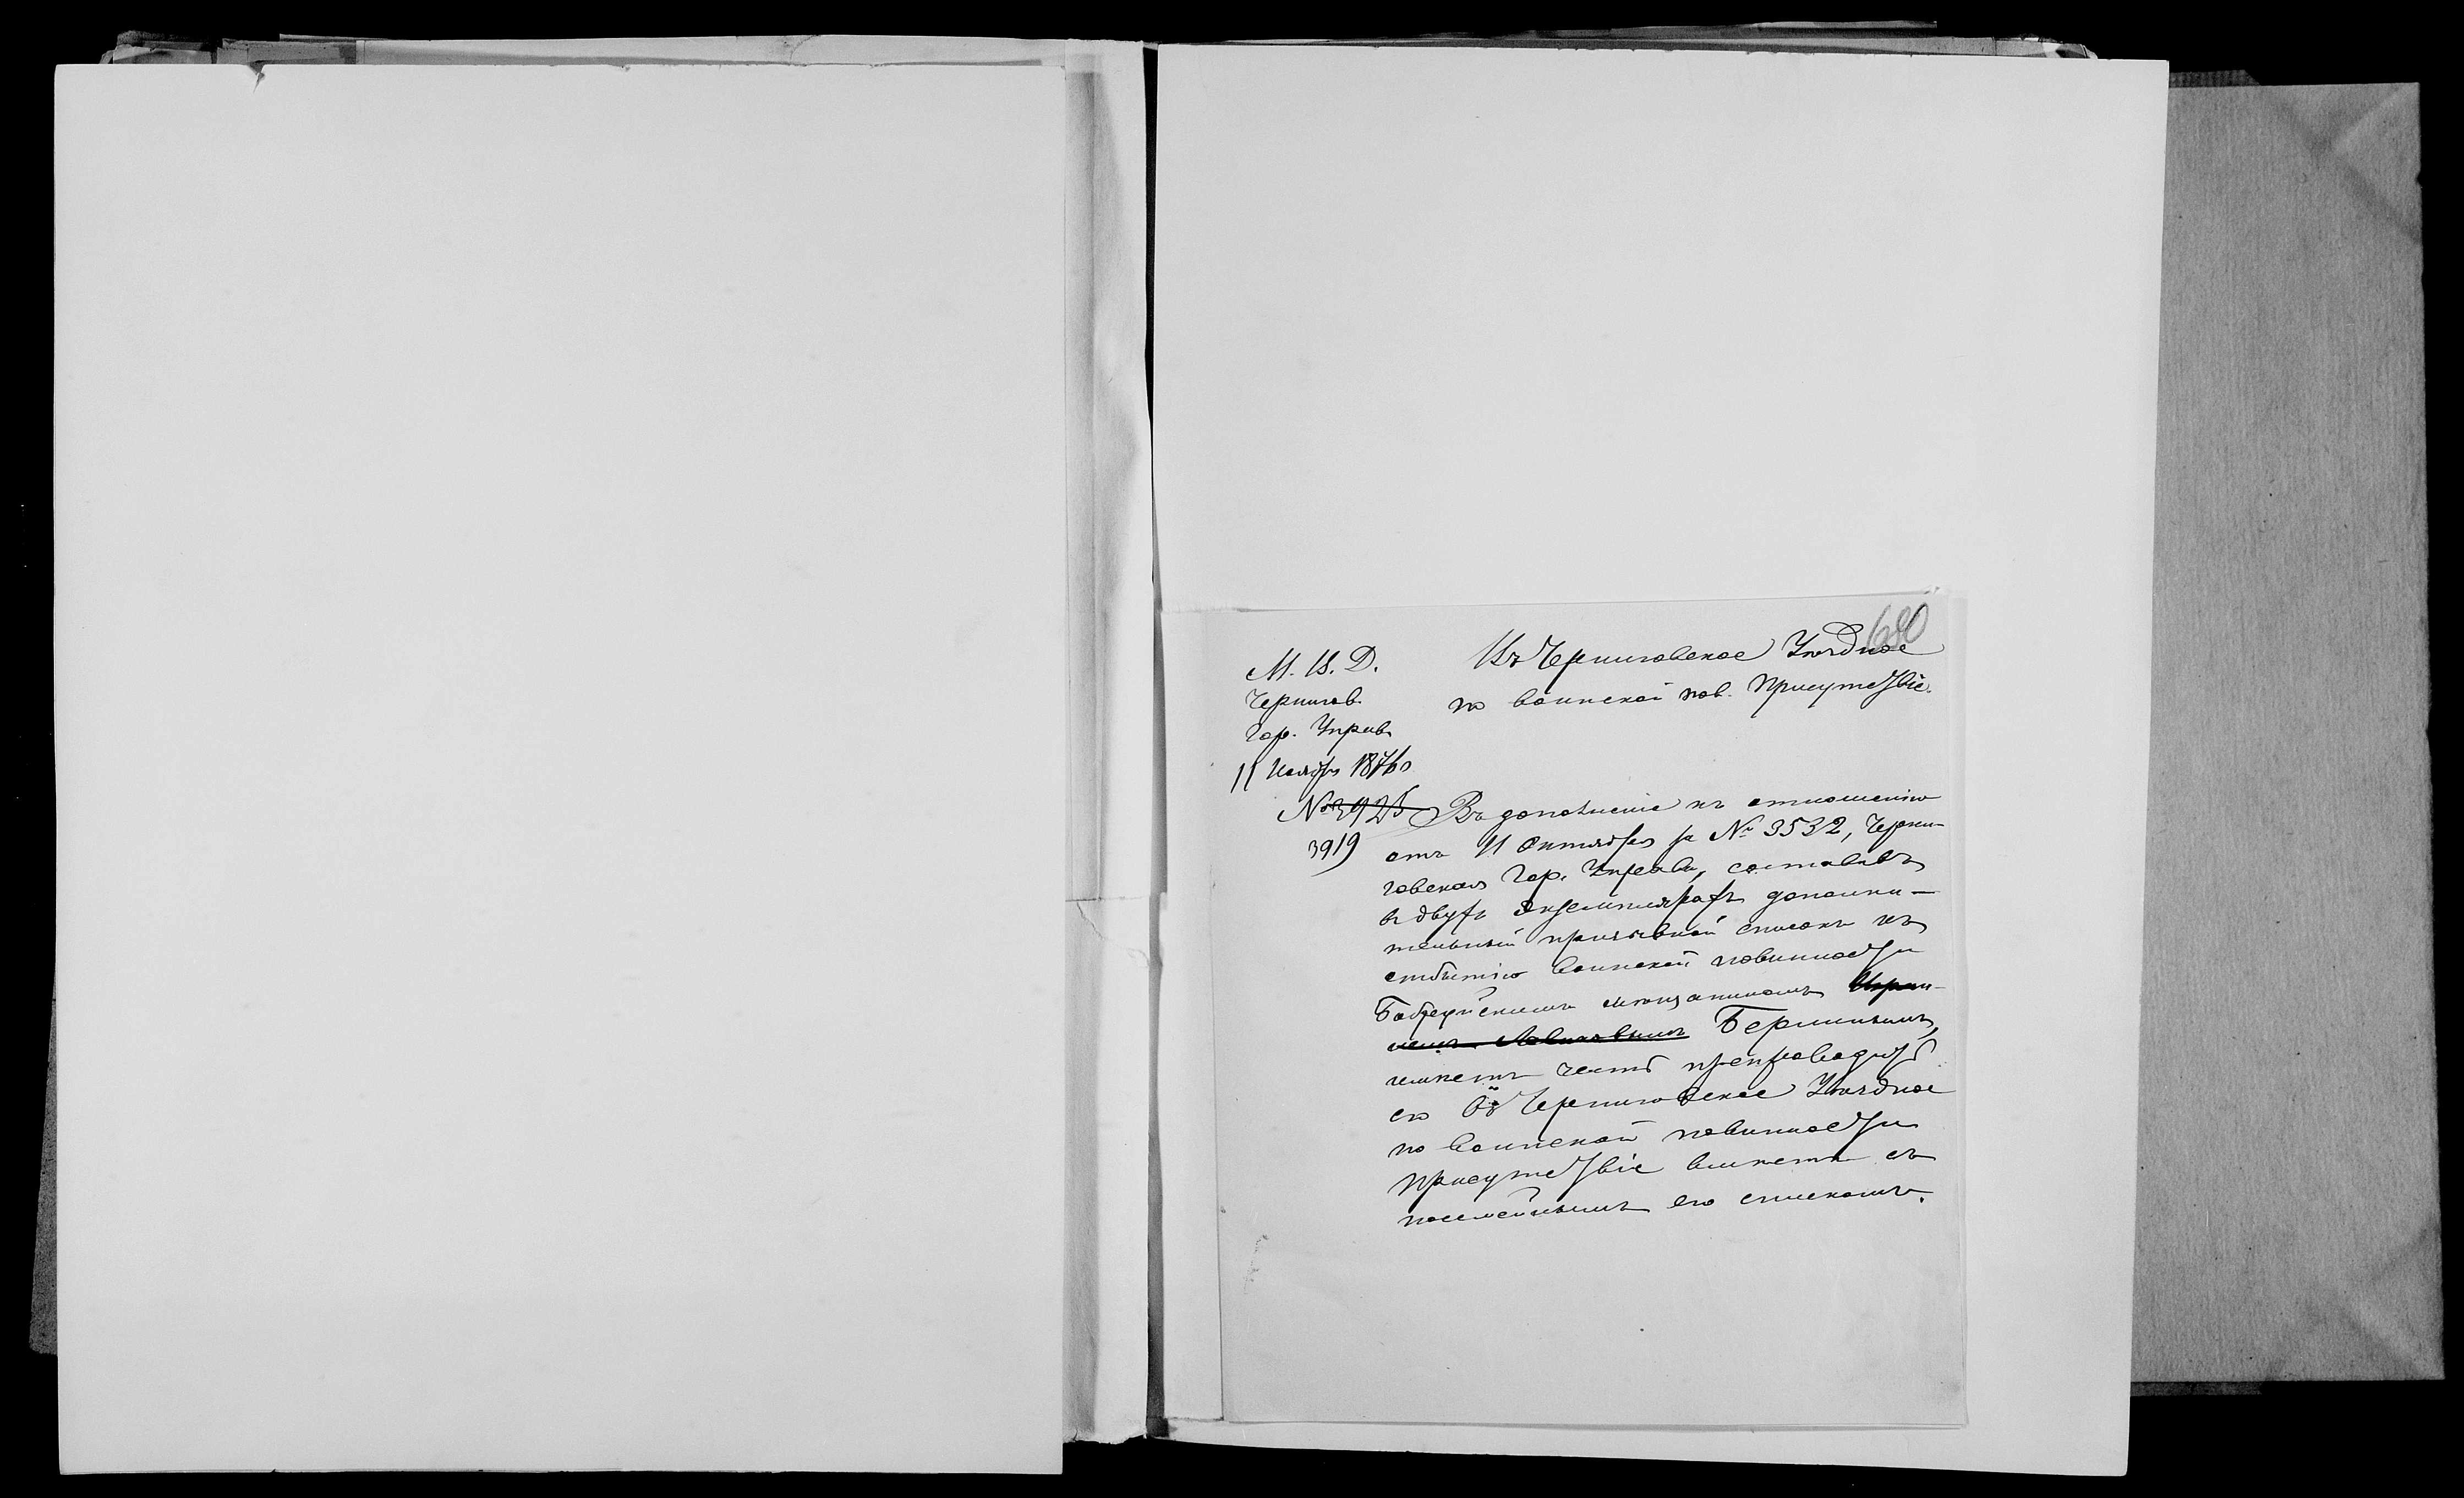 680
М. В. Д.
Чернигов.
Гор. Управ.
11 Ноября 1876 г
№ 3925
3919
Въ Черниговское Уѣздное
по воинской пов. Присутствіе.
Въ дополненіе къ отношенію
отъ 11 Октября за № 3532, Черни-
говская Гор. Управа, составивъ
въ двухъ экземплярахъ дополни-
тельный призывной списокъ къ
отбытію воинской повинности
Бобруйскимъ мѣщаниномъ
Берлинымъ,
имѣетъ честь препроводить
его въ Черниговское Уѣздное
по воинской повинности
Присутствіе вмѣстѣ съ
посемейнымъ его спискомъ.